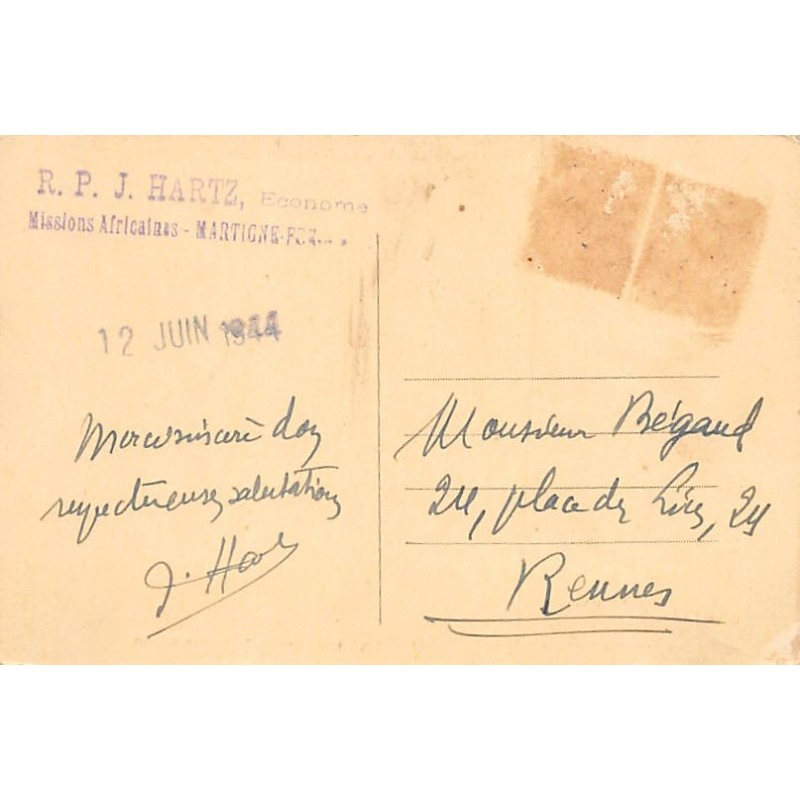 R. P. J. HARTZ, Econome
Missions Africaines - MARTIGNE-
12 JUIN 1944
Merci sincère
respectueuses salutations
J. Hartz
Monsieur Bégaud
24, place des Lices, 24
Rennes